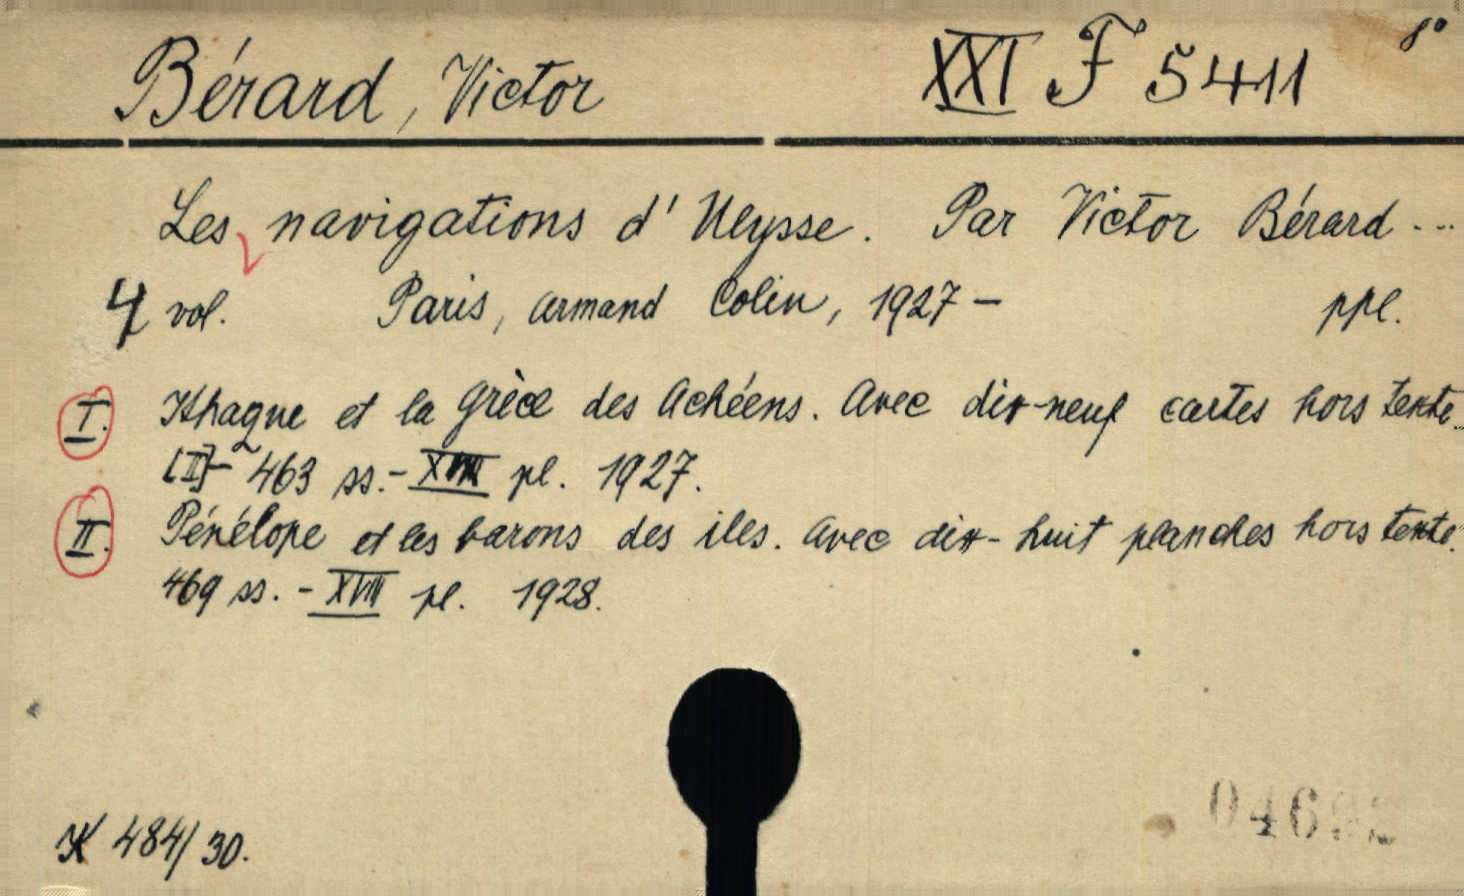 Bérard, Victor XXI F 5411 8°
Les navigations d'Ulysse. Par Victor Bérard...
4 vol. Paris, Armand Colin, 1927 – ppl.
I. Ithaque et la Grèce des Achéens. Avec dix-neuf cartes hors texte..
[II]-463 ss.- pl. 1927.
II. Pénélope et les barons des iles. Avec dix-huit planches hors texte.
469 ss. - XVIII pl. 1928.
K 484/30.